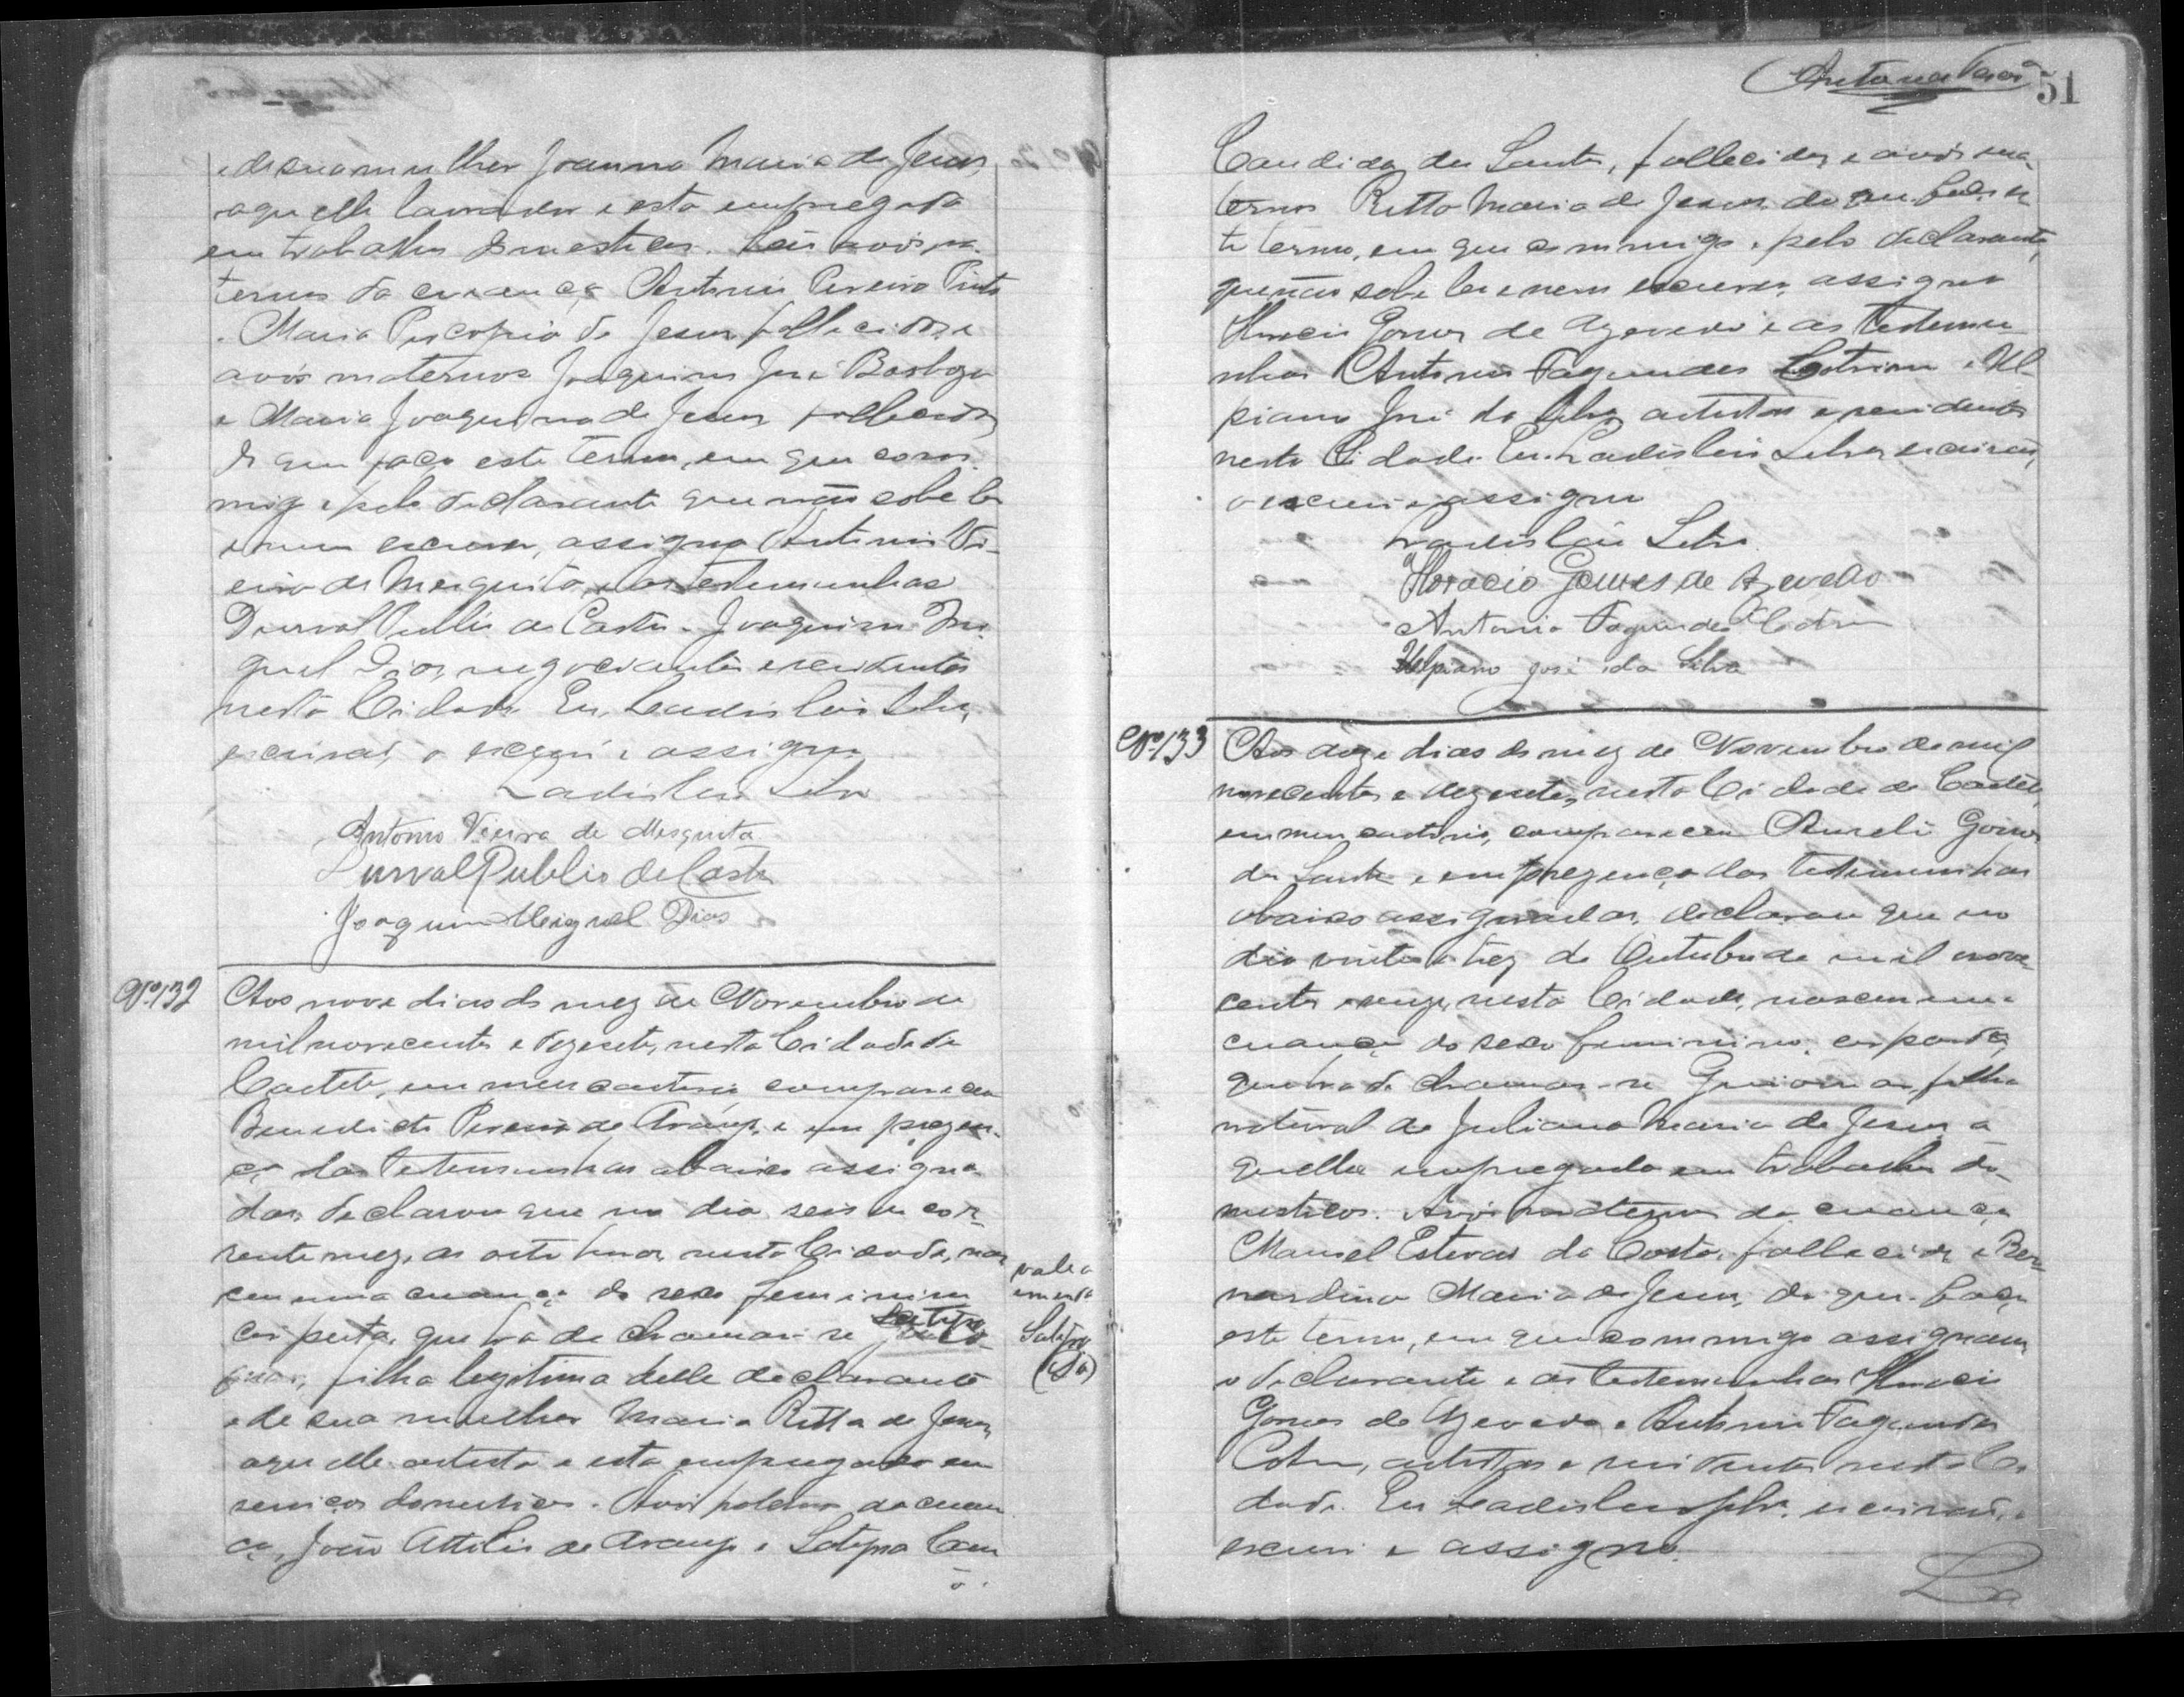 e de sua mulher Joanna Maria de Jesus,
aquelle lavrador e esta empregada
em trabalhos domesticos. São avós pa-
ternos da creança Antonio Pereira Pinto
e Maria Procopia de Jesus, fallecidos e
avós maternos Joaquim José Barboza
e Maria Joaquina de Jesus fallecidos
do que faço este termo, em que com-
migo e pelo declarante que não sabe ler
e nem escrever, assigna Antonio Vi-
eira de Mesquita, e as testemunhas
Durval Publio de Castro e Joaquim Mi-
guel Dias, negociantes e residentes
nesta Cidade. Eu, Ladislau Silva,
escrivão, o escrevi e assigno
Ladislau Silva
Antonio Vieira de Mesquita
Durval Publio de Castro
Joaquim Miguel Dias
Nº 132
Aos nove dias do mez de Novembro de
mil novecentos e dezesete, nesta Cidade de
Caeteté, em meu cartorio compareceu
Benedicto Pereira de Araujo, e em prezen-
ça das testemunhas abaixo assigna-
das, declarou que no dia seis do cor-
rente mez, as oito horas nesta Cidade, nas-
ceu uma creança do sexo feminino
cor preta, que ha de chamar-se Satyra
filha legitima delle declarante
e de sua mulher Maria Ritta de Jesus,
aquelle artista e esta empregada em
serviços domesticos. Avós paternos da crean-
ça, João Attilio de Araujo e Satyra Can-
vale a
emenda
Satyra
Antonio
51
Candida dos Santos, fallecidos e avós ma-
ternos Ritta Maria de Jesus, do que faço es-
te termo, em que commigo e pelo declarante,
que não sabe ler e nem escrever, assigna
Horacio Gomes de Azevedo e as testemu-
nhas Antonio Fagundes Cotrim e Ul-
piano José da Silva, artistas e residentes
nesta Cidade. Eu, Ladislau Silva, escrivão,
o escrevi e assigno
Ladislau Silva
Horacio Gomes de Azevedo
Antonio Fagundes Cotrim
Ulpiano José da Silva
Nº 133
Aos doze dias do mez de Novembro de mil
novecentos e dezesete, nesta Cidade de Caeteté,
em meu cartorio, compareceu Aurelio Gomes
dos Santos e em prezença das testemunhas
abaixo assignadas, declarou que no
dia vinte e trez de Outubro de mil nove-
centos e nesta Cidade, nasceu uma
creança do sexo feminino, cor parda,
que ha de chamar-se Guiomar, filha
natural de Juliana Maria de Jesus a-
quella empregada em trabalhos do-
mesticos. Avós maternos da creança
Manoel Esteves da Costa, fallecido e Ber-
nardina Maria de Jesus, do que faço
este termo, em que commigo assignam
o declarante e as testemunhas Horacio
Gomes de Azevedo e Antonio Fagundes
Cotrim, artistas e residentes nesta Ci-
dade. Eu Ladislau Silva, escrivão, o
escrevi e assigno.
La